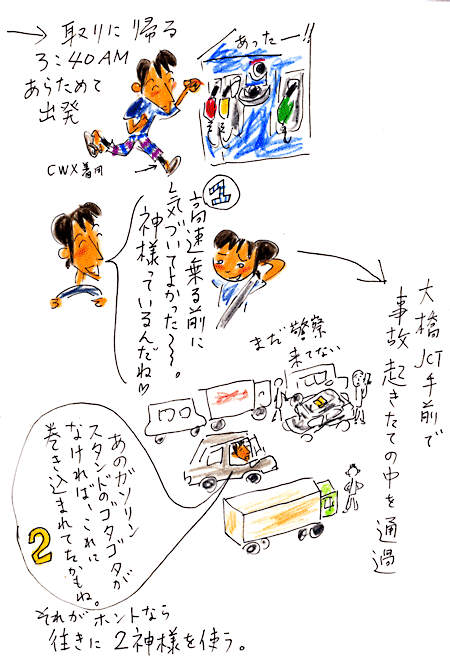 → 取りに帰る
3:40AM
あらためて
出発
CWX着用
あったー!!
1
高速乗る前に
気づいてよかった〜〜。
神様っているんだね♡
大橋JCT手前で
事故起きたての中を通過
まだ警察
来てない
あのガソリン
スタンドのゴタゴタが
なければ、これに
巻き込まれてたかもね。
2
それがホントなら
往きに2神様を使う。